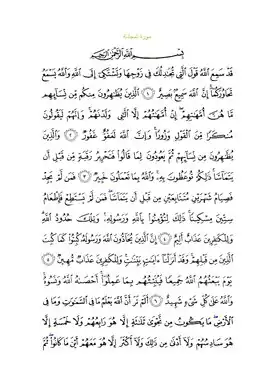 سورة المجادلة
بِسْمِ ٱللَّهِ ٱلرَّحْمَٰنِ ٱلرَّحِيمِ
قَدْ سَمِعَ ٱللَّهُ قَوْلَ ٱلَّتِى تُجَٰدِلُكَ فِى زَوْجِهَا وَتَشْتَكِىٓ إِلَى ٱللَّهِ وَٱللَّهُ يَسْمَعُ
تَحَاوُرَكُمَآ إِنَّ ٱللَّهَ سَمِيعٌۢ بَصِيرٌ ١ ٱلَّذِينَ يُظَٰهِرُونَ مِنكُم مِّن نِّسَآئِهِم
مَّا هُنَّ أُمَّهَٰتِهِمْ إِنْ أُمَّهَٰتُهُمْ إِلَّا ٱلَّٰٓـِٔى وَلَدْنَهُمْ وَإِنَّهُمْ لَيَقُولُونَ
مُنكَرًا مِّنَ ٱلْقَوْلِ وَزُورًا وَإِنَّ ٱللَّهَ لَعَفُوٌّ غَفُورٌ ٢ وَٱلَّذِينَ
يُظَٰهِرُونَ مِن نِّسَآئِهِمْ ثُمَّ يَعُودُونَ لِمَا قَالُوا۟ فَتَحْرِيرُ رَقَبَةٍ مِّن قَبْلِ أَن
يَتَمَآسَّا ذَٰلِكُمْ تُوعَظُونَ بِهِۦ وَٱللَّهُ بِمَا تَعْمَلُونَ خَبِيرٌ ٣ فَمَن لَّمْ يَجِدْ
فَصِيَامُ شَهْرَيْنِ مُتَتَابِعَيْنِ مِن قَبْلِ أَن يَتَمَآسَّا فَمَن لَّمْ يَسْتَطِعْ فَإِطْعَامُ
سِتِّينَ مِسْكِينًا ذَٰلِكَ لِتُؤْمِنُوا۟ بِٱللَّهِ وَرَسُولِهِۦ وَتِلْكَ حُدُودُ ٱللَّهِ
وَلِلْكَٰفِرِينَ عَذَابٌ أَلِيمٌ ٤ إِنَّ ٱلَّذِينَ يُحَآدُّونَ ٱللَّهَ وَرَسُولَهُۥ كُبِتُوا۟ كَمَا كُبِتَ
ٱلَّذِينَ مِن قَبْلِهِمْ وَقَدْ أَنزَلْنَآ ءَايَٰتٍۭ بَيِّنَٰتٍ وَلِلْكَٰفِرِينَ عَذَابٌ مُّهِينٌ ٥
يَوْمَ يَبْعَثُهُمُ ٱللَّهُ جَمِيعًا فَيُنَبِّئُهُم بِمَا عَمِلُوٓا۟ أَحْصَىٰهُ ٱللَّهُ وَنَسُوهُ
وَٱللَّهُ عَلَىٰ كُلِّ شَىْءٍ شَهِيدٌ ٦ أَلَمْ تَرَ أَنَّ ٱللَّهَ يَعْلَمُ مَا فِى ٱلسَّمَٰوَٰتِ وَمَا فِى
ٱلْأَرْضِ مَا يَكُونُ مِن نَّجْوَىٰ ثَلَٰثَةٍ إِلَّا هُوَ رَابِعُهُمْ وَلَا خَمْسَةٍ إِلَّا
هُوَ سَادِسُهُمْ وَلَآ أَدْنَىٰ مِن ذَٰلِكَ وَلَآ أَكْثَرَ إِلَّا هُوَ مَعَهُمْ أَيْنَ مَا كَانُوا۟ ثُمَّ